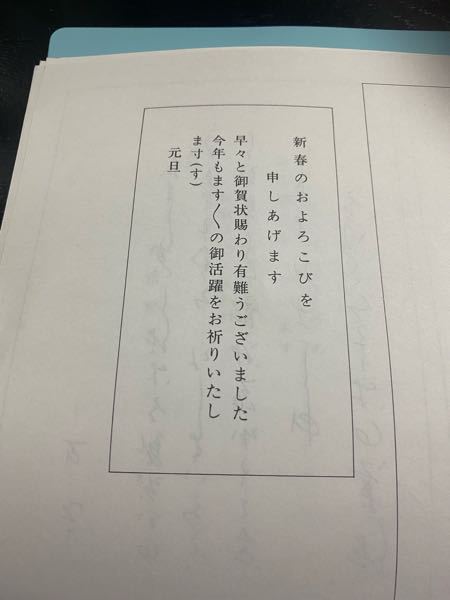 新春のおよろこびを
申しあげます
早々と御賀状賜わり有難うございました
今年もます〳〵の御活躍をお祈りいたし
ま寸(す)
元旦